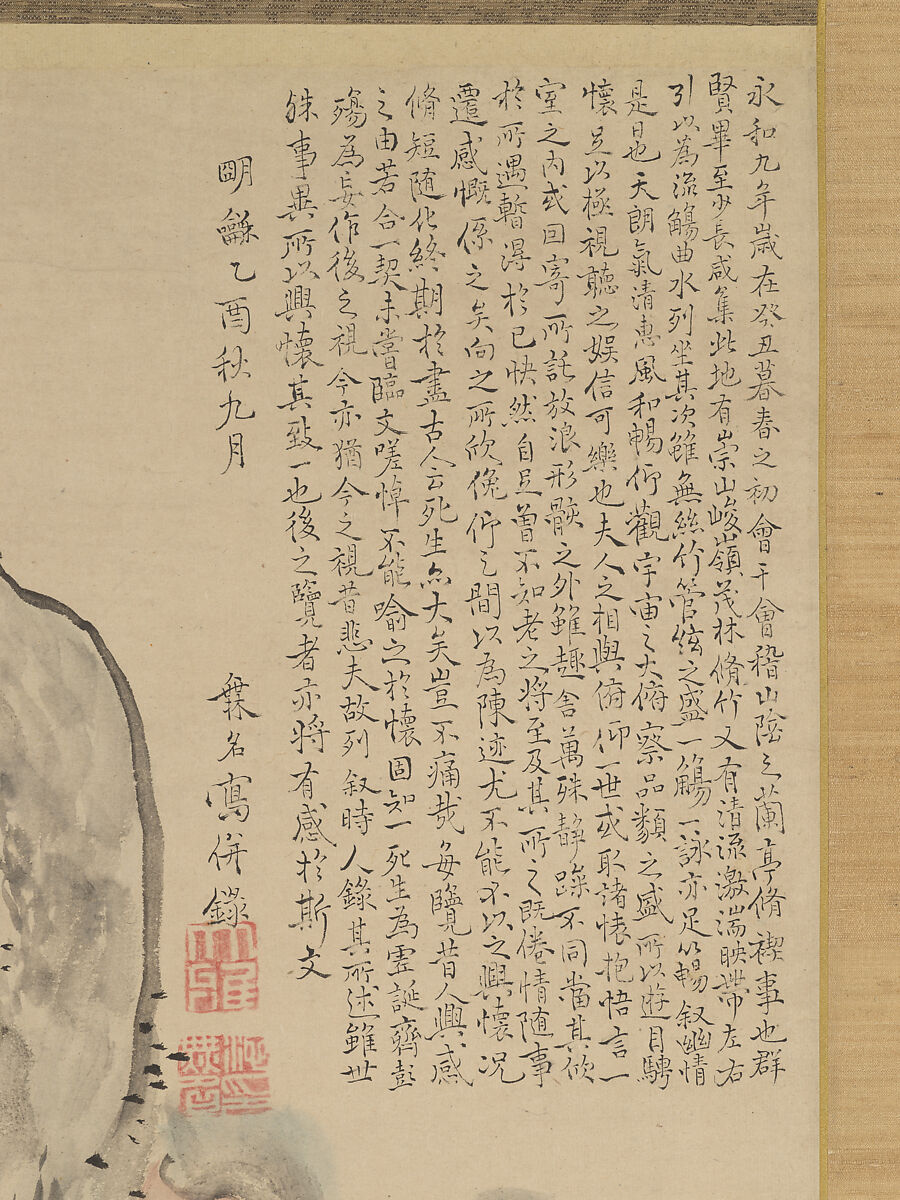 永和九年歲在癸丑暮春之初會于會稽山陰之蘭亭脩禊事也群
賢畢至少長咸集此地有崇山峻嶺茂林脩竹又有清流激湍映帶左右
引以為流觴曲水列坐其次雖無絲竹管絃之盛一觴一詠亦足以暢叙幽情
是日也天朗氣清惠風和暢仰觀宇宙之大俯察品類之盛所以遊目騁
懷足以極視聽之娛信可樂也夫人之相與俯仰一世或取諸懷抱悟言一
室之內或回寄所託放浪形骸之外雖趣舍萬殊靜躁不同當其欣
於所遇暫得於己快然自足曽不知老之將至及其所之既倦情隨事
遷感慨係之矣向之所欣俛仰之間以為陳迹尤不能不以之興懷況
脩短隨化終期於盡古人云死生亦大矣豈不痛哉每覽昔人興感
之由若合一契未嘗臨文嗟悼不能喻之於懷固知一死生為虛誕齊彭
殤為妄作後之視今亦猶今之視昔悲夫故列叙時人錄其所述雖世
殊事異所以興懷其致一也後之覽者亦將有感於斯文
明龢乙酉秋九月
無名寫併錄